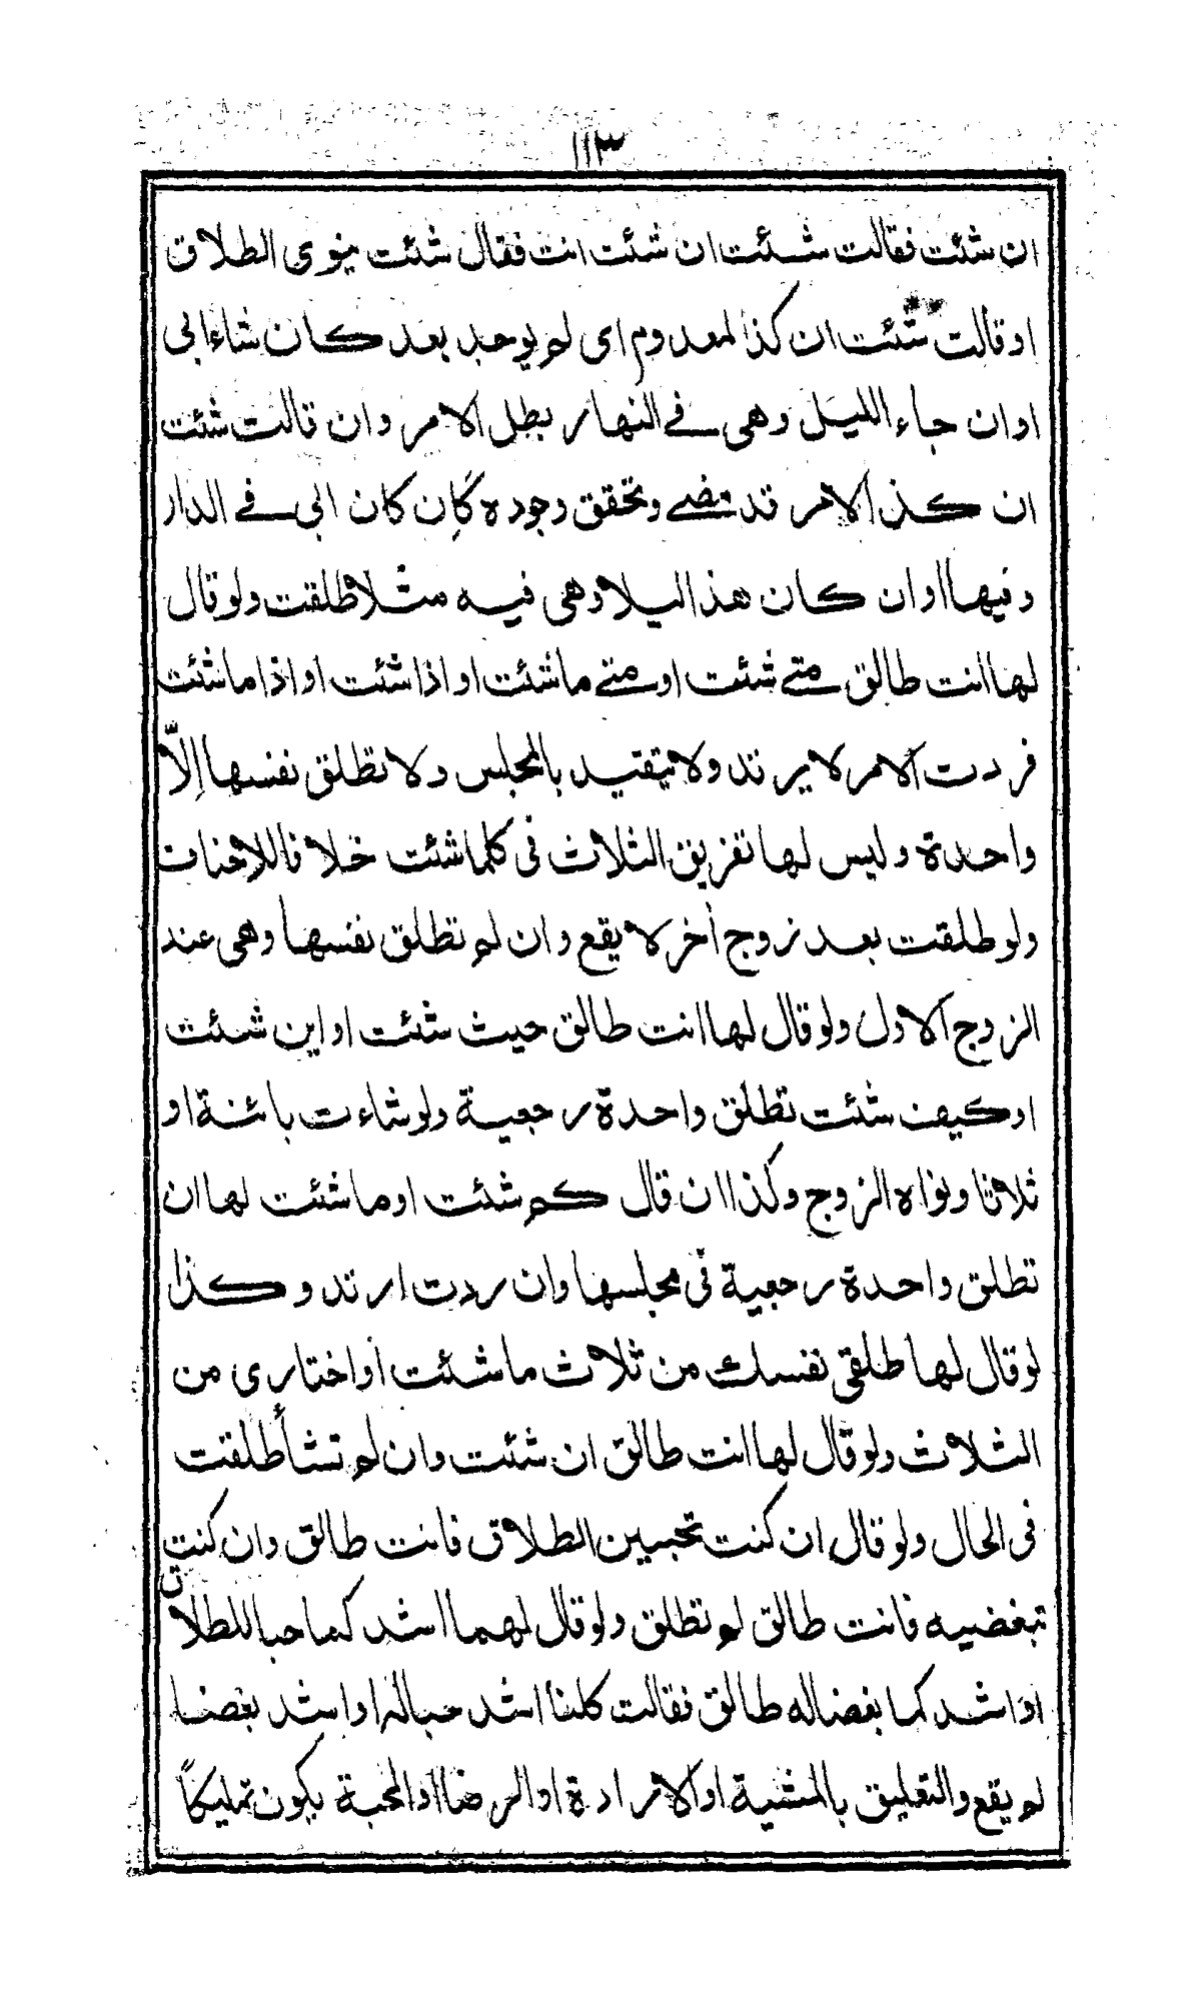 ١١٣
ان شئت فقالت شئت ان شئت انت فقال شئت ينوى الطلاق
او قالت شئت ان كذا لمعدوم اى لم يوجد بعد كان شاء ابى
او ان جاء الليل وهى فى النهار بطل الامر وان قالت شئت
ان كذا الامر قد مضى وتحقق وجوده كان كان ابى فى الدار
وفيها او ان كان هذا ليلا وهى فيه مثلا طلقت ولو قال
لها انت طالق متى شئت او متى ما شئت او اذا شئت او اذا ما شئت
فردت الامر لا يرتد ولا يتقيد بالمجلس ولا تطلق نفسها إلاّ
واحدة وليس لها تفريق الثلاث فى كلما شئت خلافا للاحناف
ولو طلقت بعد زوج أخر لا يقع وان لم تطلق نفسها وهى عند
الزوج الاول ولو قال لها انت طالق حيث شئت او اين شئت
او كيف شئت تطلق واحدة رجعية ولو شاءت بائنة او
ثلاثا ونواه الزوج وكذا ان قال كم شئت او ما شئت لها ان
تطلق واحدة رجعية فى مجلسها وان ردت ارتد وكذا
لو قال لها طلقى نفسك من ثلاث ما شئت أو اختارى من
الثلاث ولو قال لها انت طالق ان شئت وان لم تشأ طلقت
فى الحال ولو قال ان كنت تحبين الطلاق فانت طالق وان كنت
تبغضيه فانت طالق لم تطلق ولو قال لهما اشد كما حبا للطلاق
او اشد كما بغضا له طالق فقالت كلتا اشد حبا له او اشد بغضا
لم يقع والتعليق بالمشية او الارادة او الرضا او المحبة يكون تمليكاً